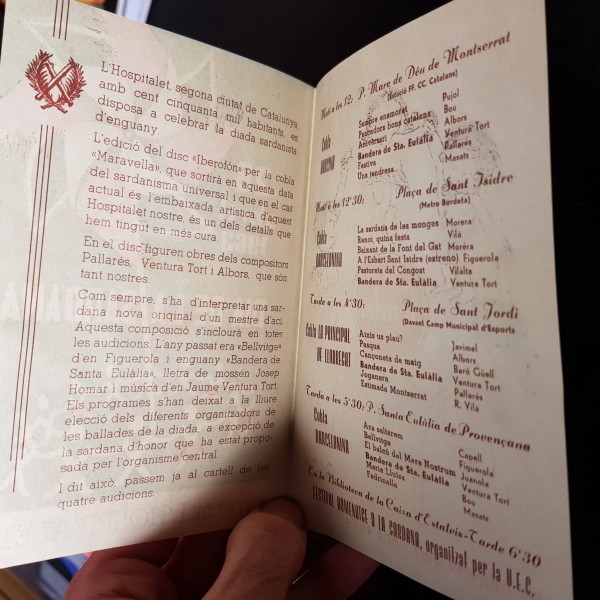 L'Hospitalet, segona ciutat de Catalunya
amb cent cinquanta mil habitants, es
disposa a celebrar la diada sardanista
d'enguany.
L'edició del disc «Iberofón» per la cobla
«Maravella», que sortirà en aquesta data
del sardanisme universal i que en el cas
actual és l'embaixada artística, d'aquest
Hospitalet nostre, és un dels detalls que
hem tingut en més cura.
En el disc figuren obres dels compositors
Pallarés, Ventura Tort i Albors, que són
tant nostres.
Com sempre, s'ha d'interpretar una sar-
dana nova original d'un mestre d'ací.
Aquesta composició s'inclourà en totes
les audicions. L'any passat era «Bellvitge»
d'en Figuerola i enguany «Bandera de
Santa Eulàlia», lletra de mossen Josep
Homar i música d'en Jaume Ventura Tort.
Els programes s'han deixat a la lliure
elecció dels diferents organitzadors de
les ballades de la diada, a excepció de
la sardana d'honor que ha estat propo-
sada per l'organisme central.
I dit això, passem ja al cartell de les
quatre audicions.
a les 12: P. Mare de Déu de Montserrat
(Estació FF. CC. Catalans)
Cobla
Sempre enamorat Pujol
Pescadors bons catalans Bou
Aniversari Albors
Bandera de Sta. Eulàlia Ventura Tort
Festiva Pallarés
Una tendresa Masats
a 12'30: Plaça de Sant Isidre
(Metro Bordeta)
Cobla BARCELONINA
La sardana de les monges Morera
Enric, quina festa Vilà
Baixant de la Font del Gat Morera
A l'Esbart Sant Isidre (estreno) Figuerola
Pastorets del Congost Vilalta
Bandera de Sta. Eulàlia Ventura Tort
Tarde a les 4'30: Plaça de Sant Jordi
(Davant Camp Municipal d'Esports
Cobla LA PRINCIPAL DE LLOBREGAT
Aixís us plau? Javimel
Pasqua Albors
Cançoneta de maig Baró Güell
Bandera de Sta. Eulàlia Ventura Tort
Joganera Pallarés
Estimada Montserrat R. Vilà
Tarde a les 5'30: P. Santa Eulàlia de Provençana
Cobla BARCELONINA
Ara saltarem Capell
Bellvitge Figuerola
El balcó del Mare Nostrum Juanola
Bandera de Sta. Eulàlia Ventura Tort
Maria Lluisa Bou
Fadrinalla Masats
En la Biblioteca de la Caixa d'Estalvis-Tarde 6'30
FESTIVAL HOMENATGE A LA SARDANA, organitzat per la U.E.C.